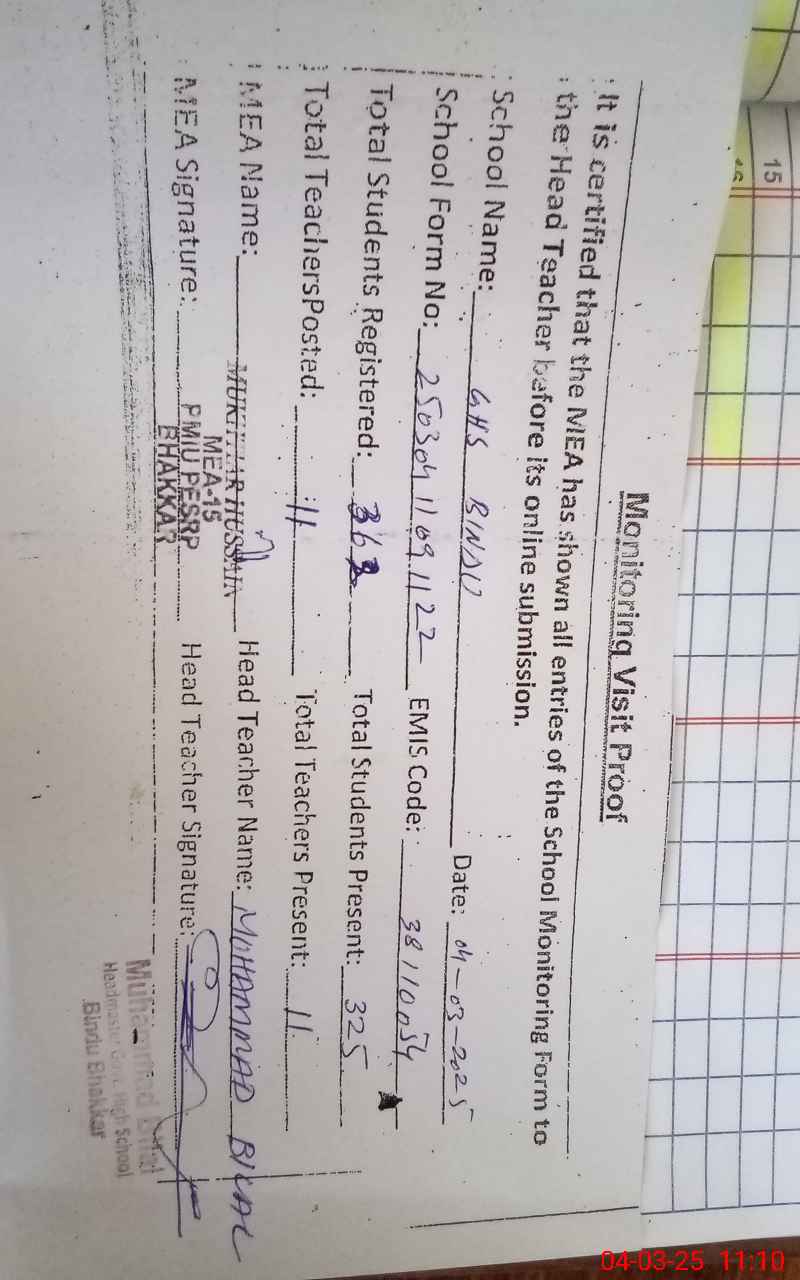 Monitoring Visit Proof
It is certified that the MEA has shown all entries of the School Monitoring Form to
the Head Teacher before its online submission.
School Name: GHS BINDU Date: 04-03-2025
School Form No: 25030411091122 EMIS Code: 38110054
Total Students Registered: Total Students Present: 325
Total TeachersPosted: 11 Total Teachers Present: 11
MEA Name: MUKHTAR HUSSAIN Head Teacher Name: MOHAMMAD BILAL
MEA-15
MEA Signature: PMIU PESRP Head Teacher Signature:
BHAKKAR
Muhammad Bilal
Headmaster Govt. High School
Bindu Bhakkar
15
16
04-03-25 11:10